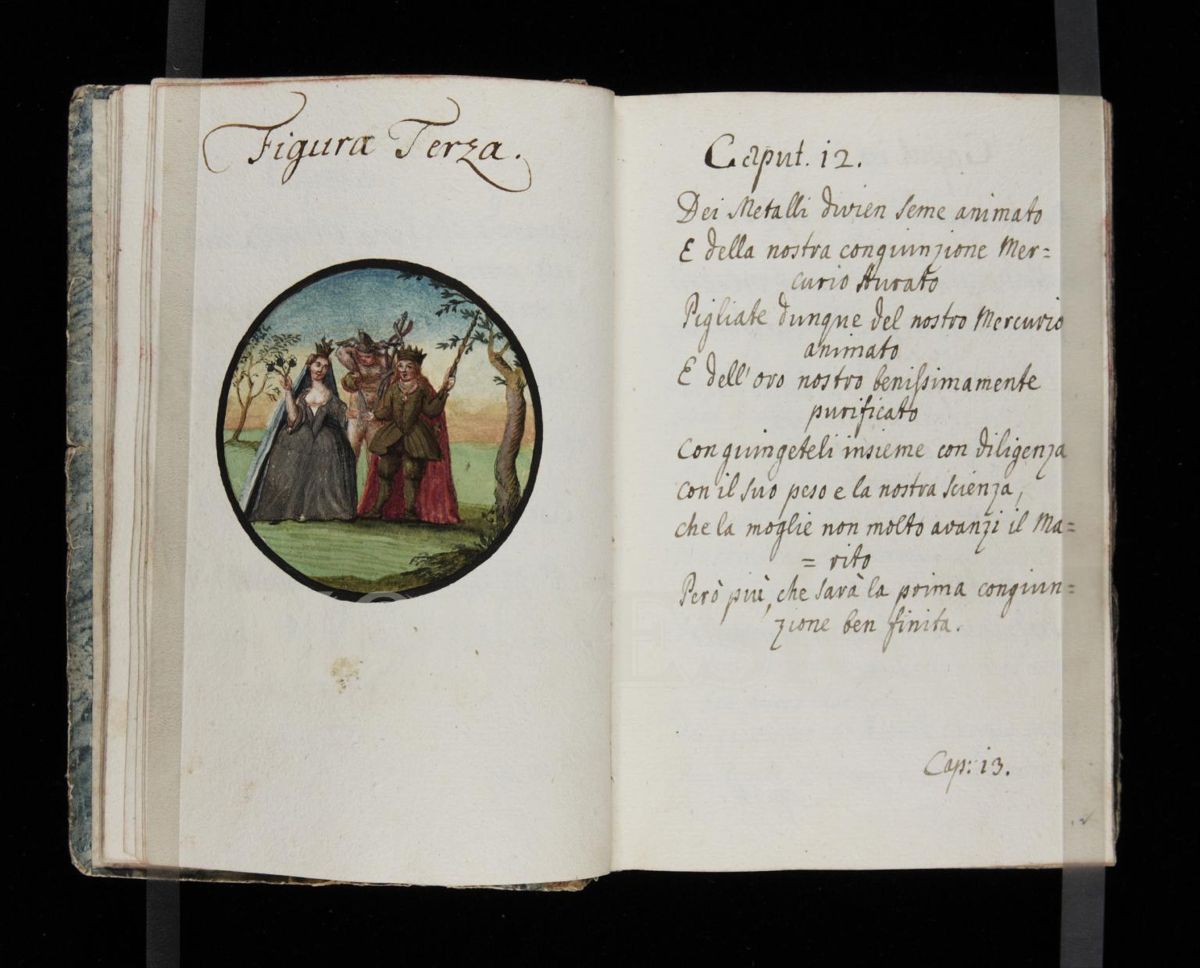 Figura Terza.
Caput. 12.
Dei Metalli divien seme animato
E della nostra conguinzione Mer=
curio Aurato
Pigliate dunque del nostro Mercurio
animato
E dell'oro nostro benissimamente
purificato
Conguingeteli insieme con diligenza
con il suo peso e la nostra scienza,
che la moglie non molto avanzi il Ma=
= rito
Però più, che sarà la prima congiun=
zione ben finita.
Cap: 13.